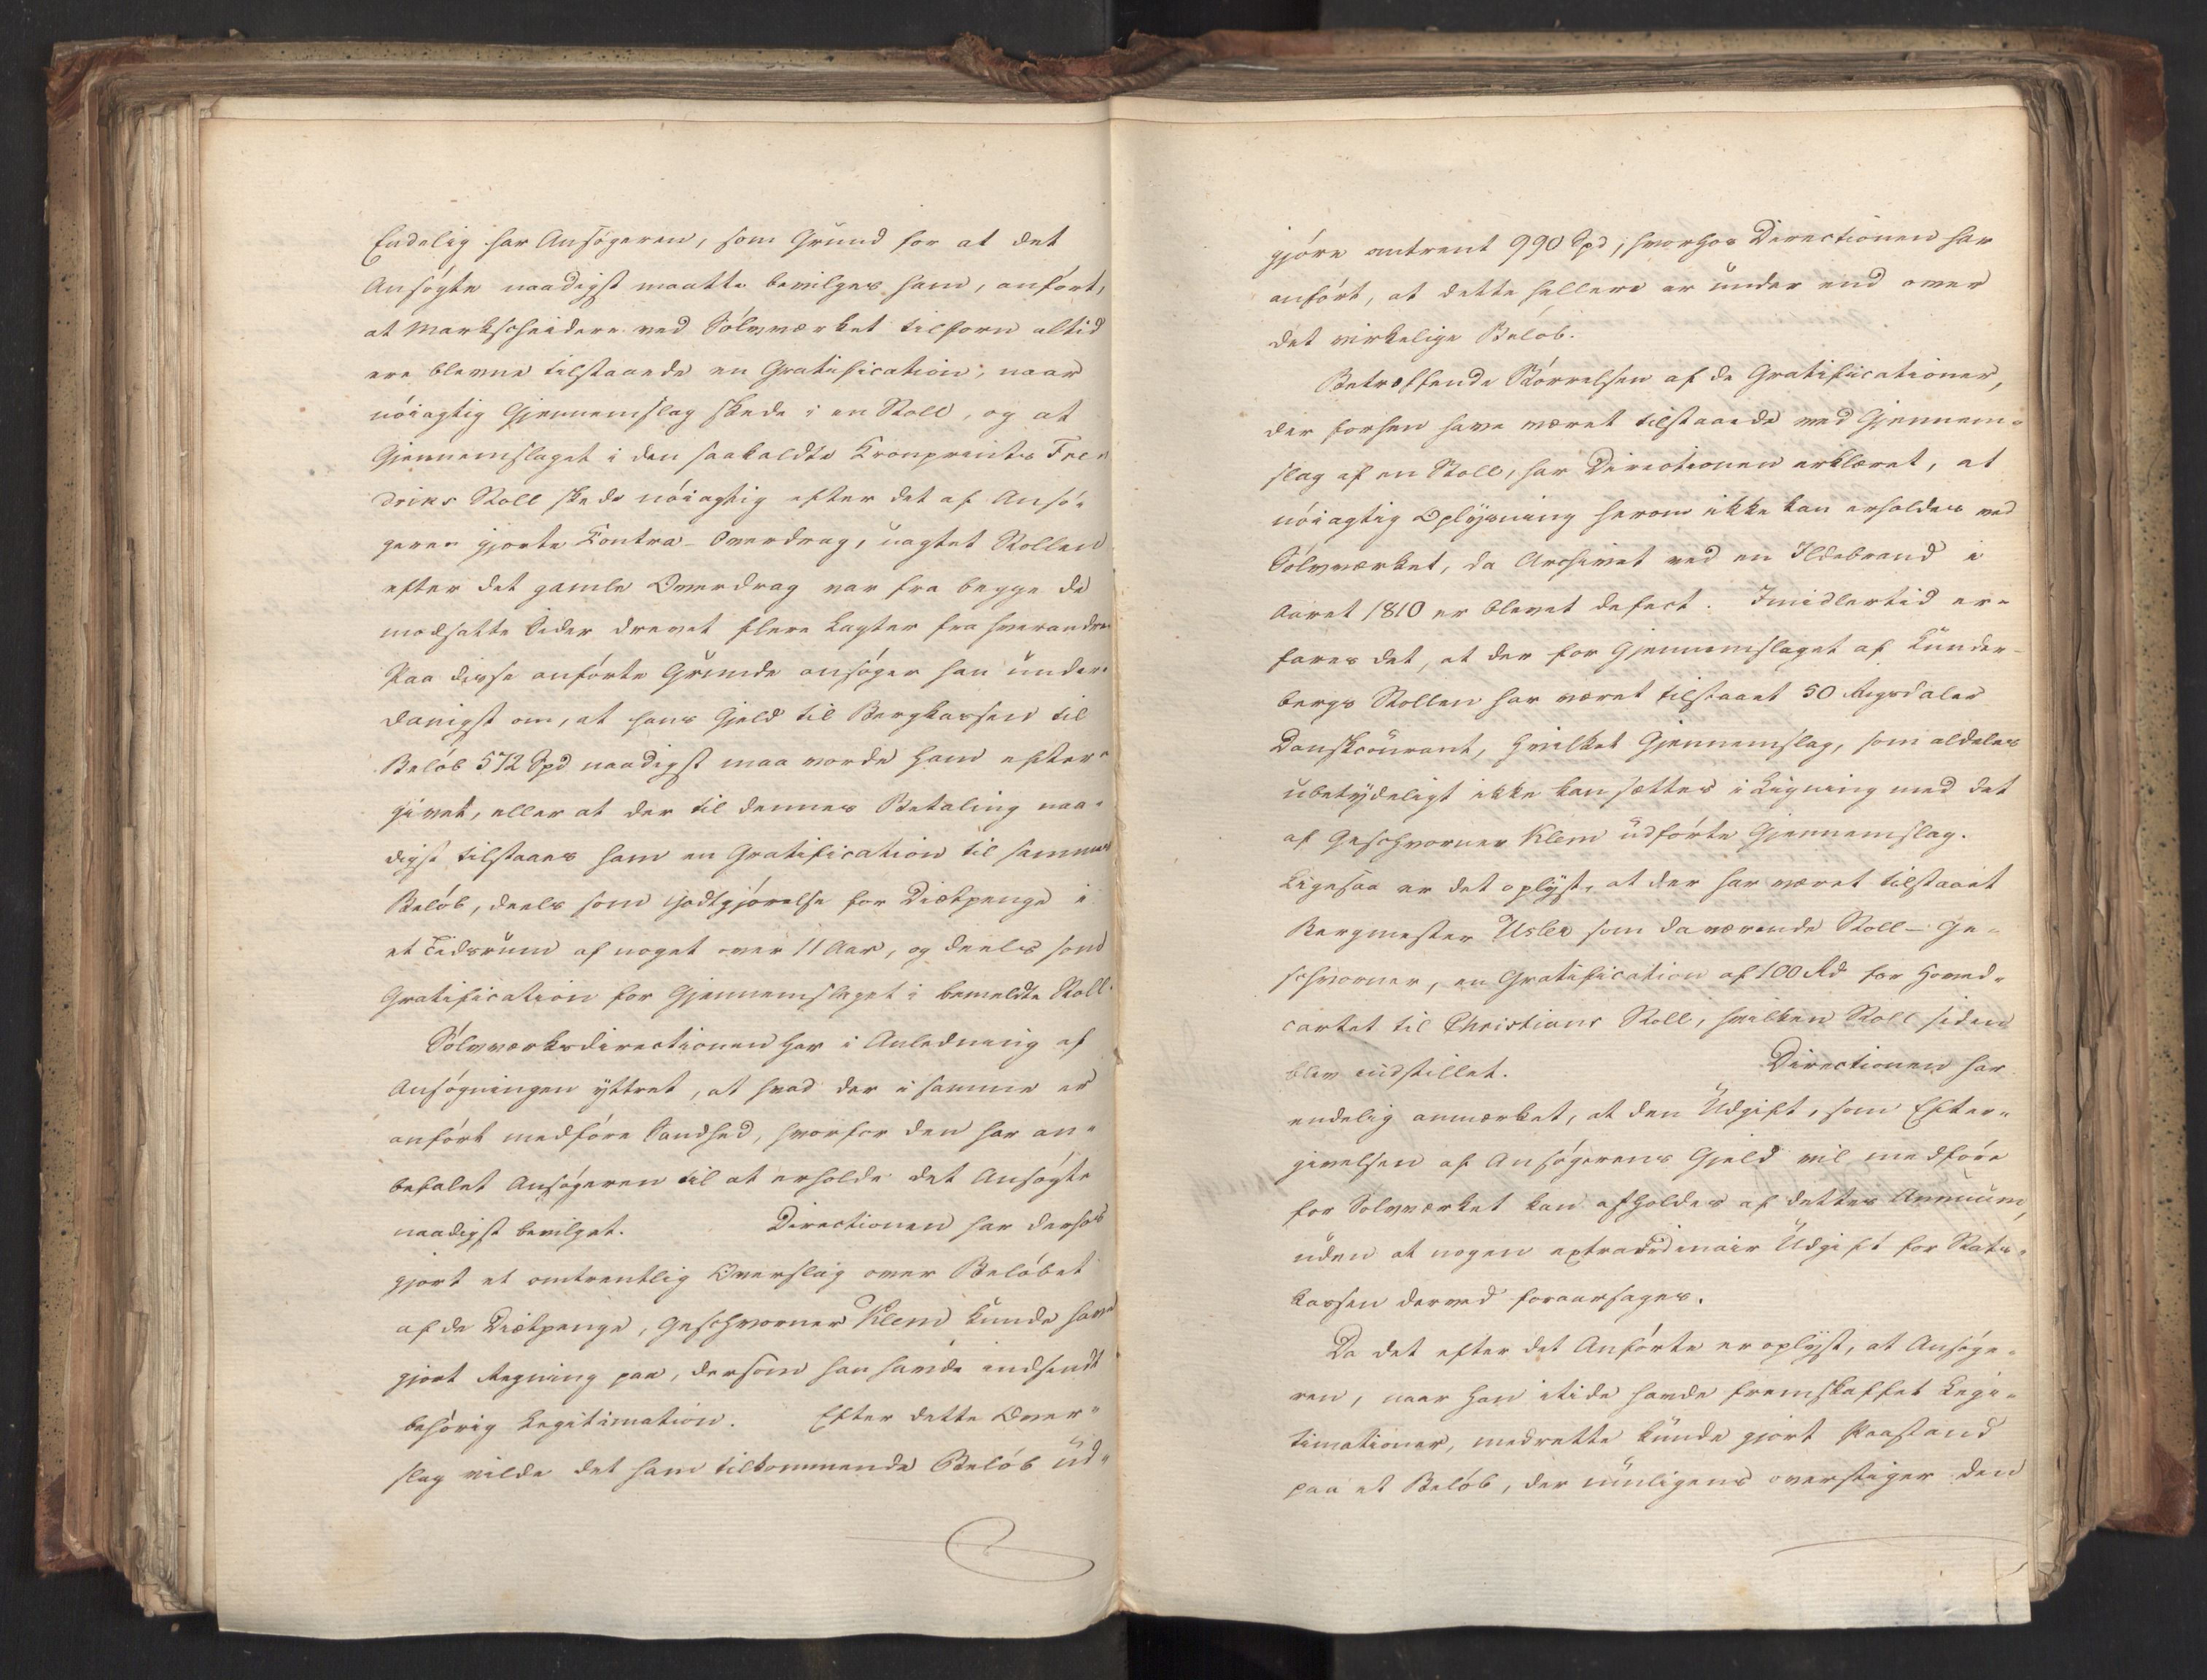 Endelig har Ansøgeren, som Grund for at det
Ansøgte naadigst maatte bevilges ham, anført,
at Markscheidere ved Sølvværket tilforn altid
ere blevne tilstaaede en Gratification, naar
nøiagtig Gjennemslag skede i en Stoll, og at
Gjennemslaget i den saakaldte Kronprints Fre-
driks Stoll skede nøiagtig efter det af Ansø-
geren gjorte Contra-Overdrag, uagtet Stollen
efter det gamle Overdrag var fra begge de
modsatte Sider drevet flere Lagter fra hverandre
Paa disse anførte Grunde ansøger han under-
danigst om, at hans Gjeld til Bergkassen til
Beløb 572 Spd naadigst maa vorde ham efter-
givet, eller at der til dennes Betaling naa-
digst tilstaaes ham en Gratification til samme
Beløb, deels som Godtgjørelse for Diætpenge i
et Tidsrum af noget over 11 Aar, og deels som
Gratification for Gjennemslaget i bemeldte Stoll.
Sølvværksdirectionen har i Anledning af
Ansøgningen yttret, at hvad der i samme er
anført medføre Sandhed, hvorfor den har an-
befalet Ansøgeren til at erholde det Ansøgte
naadigst bevilget. Directionen har derhos
gjort et omtrentlig Overslag over Beløbet
af de Diætpenge, Geschworner Klem kunde have
gjort Regning paa, dersom han havde indsendt
behørig Legitimation. Efter dette Over-
slag vilde det ham tilkommende Beløb ud-
gjøre omtrent 990 Spd; hvorhos Directionen har
anført, at dette hellere er under end over
det virkelige Beløb.
Betræffende Størrelsen af de Gratificationer,
der forhen have været tilstaaede ved Gjennem-
slag af en Stoll, har Directionen erklæret, at
nøiagtig Oplysning herom ikke kan erholdes ved
Sølvværket, da Archivet ved en Ildebrand i
Aaret 1810 er blevet defect. Imidlertid er-
fares det, at der for Gjennemslaget af Under-
bergs Stollen har været tilstaaet 50 Rigsdaler
Danskcourant, hvilket Gjennemslag, som aldeles
ubetydeligt ikke kan sættes i Ligning med det
af Geschworner Klem udførte Gjennemslag.
Ligesaa er det oplyst, at der har været tilstaaet
Bergmester Usler som daværende Stoll-Ge-
schworner, en Gratification af 100 Rd for Hoved-
cartet til Christians Stoll, hvilken Stoll siden
blev indstillet. Directionen har
endelig anmærket, at den Udgift, som Efter-
givelsen af Ansøgerens Gjeld vil medføre
for Sølvværket kan afholdes af dettes Annuum,
uden at nogen extraordinair Udgift for Stats-
kassen derved foraarsages.
Da det efter det Anførte er oplyst, at Ansøge-
ren, naar han itide havde fremskaffet Legi-
timationer, medrette kunde gjort Paastand
paa et Beløb, der rimeligens overstiger den